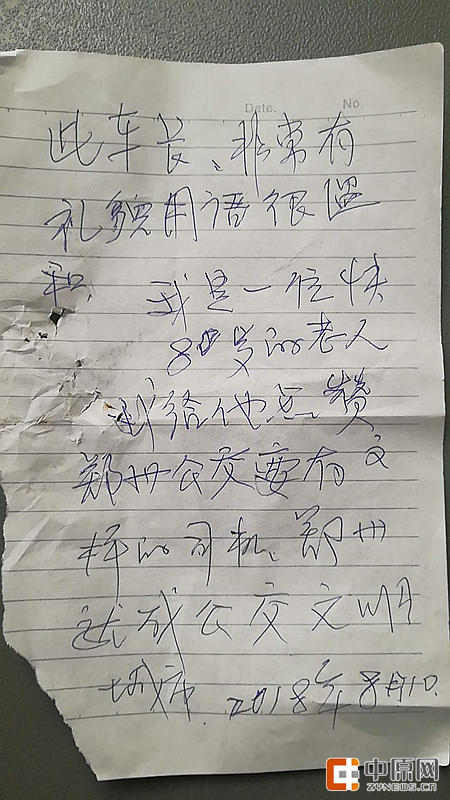 Date. No.
此车长、非常有
礼貌用语很温
和, 我是一位快
80岁的老人
我给他点赞
郑州公交要有文
样的司机、郑州
就成公交文明
城市 2018年8月10.
中原网
ZYNEWS.CN